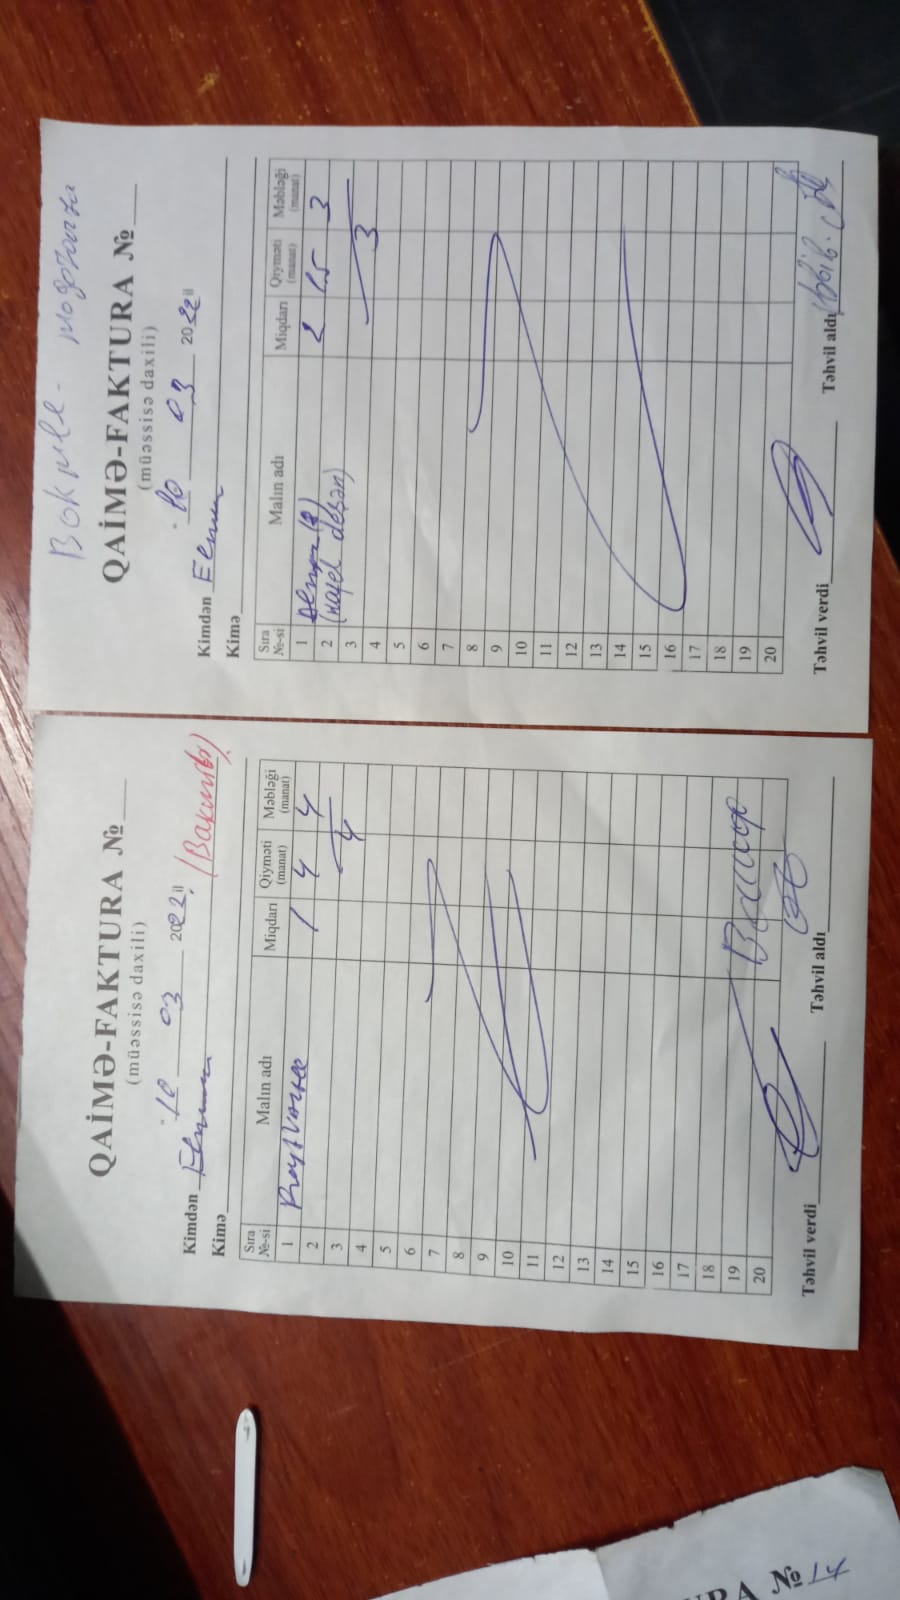 QAİMƏ-FAKTURA №
(müəssisə daxili)
10 03 2022 il
Kimdən
Kimə (Вакиль)
Sıra №-si Malın adı Miqdarı Qiyməti (manat) Məbləği (manat)
1 1 4 4
2
3 4
4
5
6
7
8
9
10
11
12
13
14
15
16
17
18
19
20
Təhvil verdi Təhvil aldı
QAİMƏ-FAKTURA №
(müəssisə daxili)
10 03 2022 il
Kimdən Elman
Kimə
Sıra №-si Malın adı Miqdarı Qiyməti (manat) Məbləği (manat)
1 2 1.5 3
2 (kafel deşən)
3
4 3
5
6
7
8
9
10
11
12
13
14
15
16
17
18
19
20
Təhvil verdi Təhvil aldı
№ 14